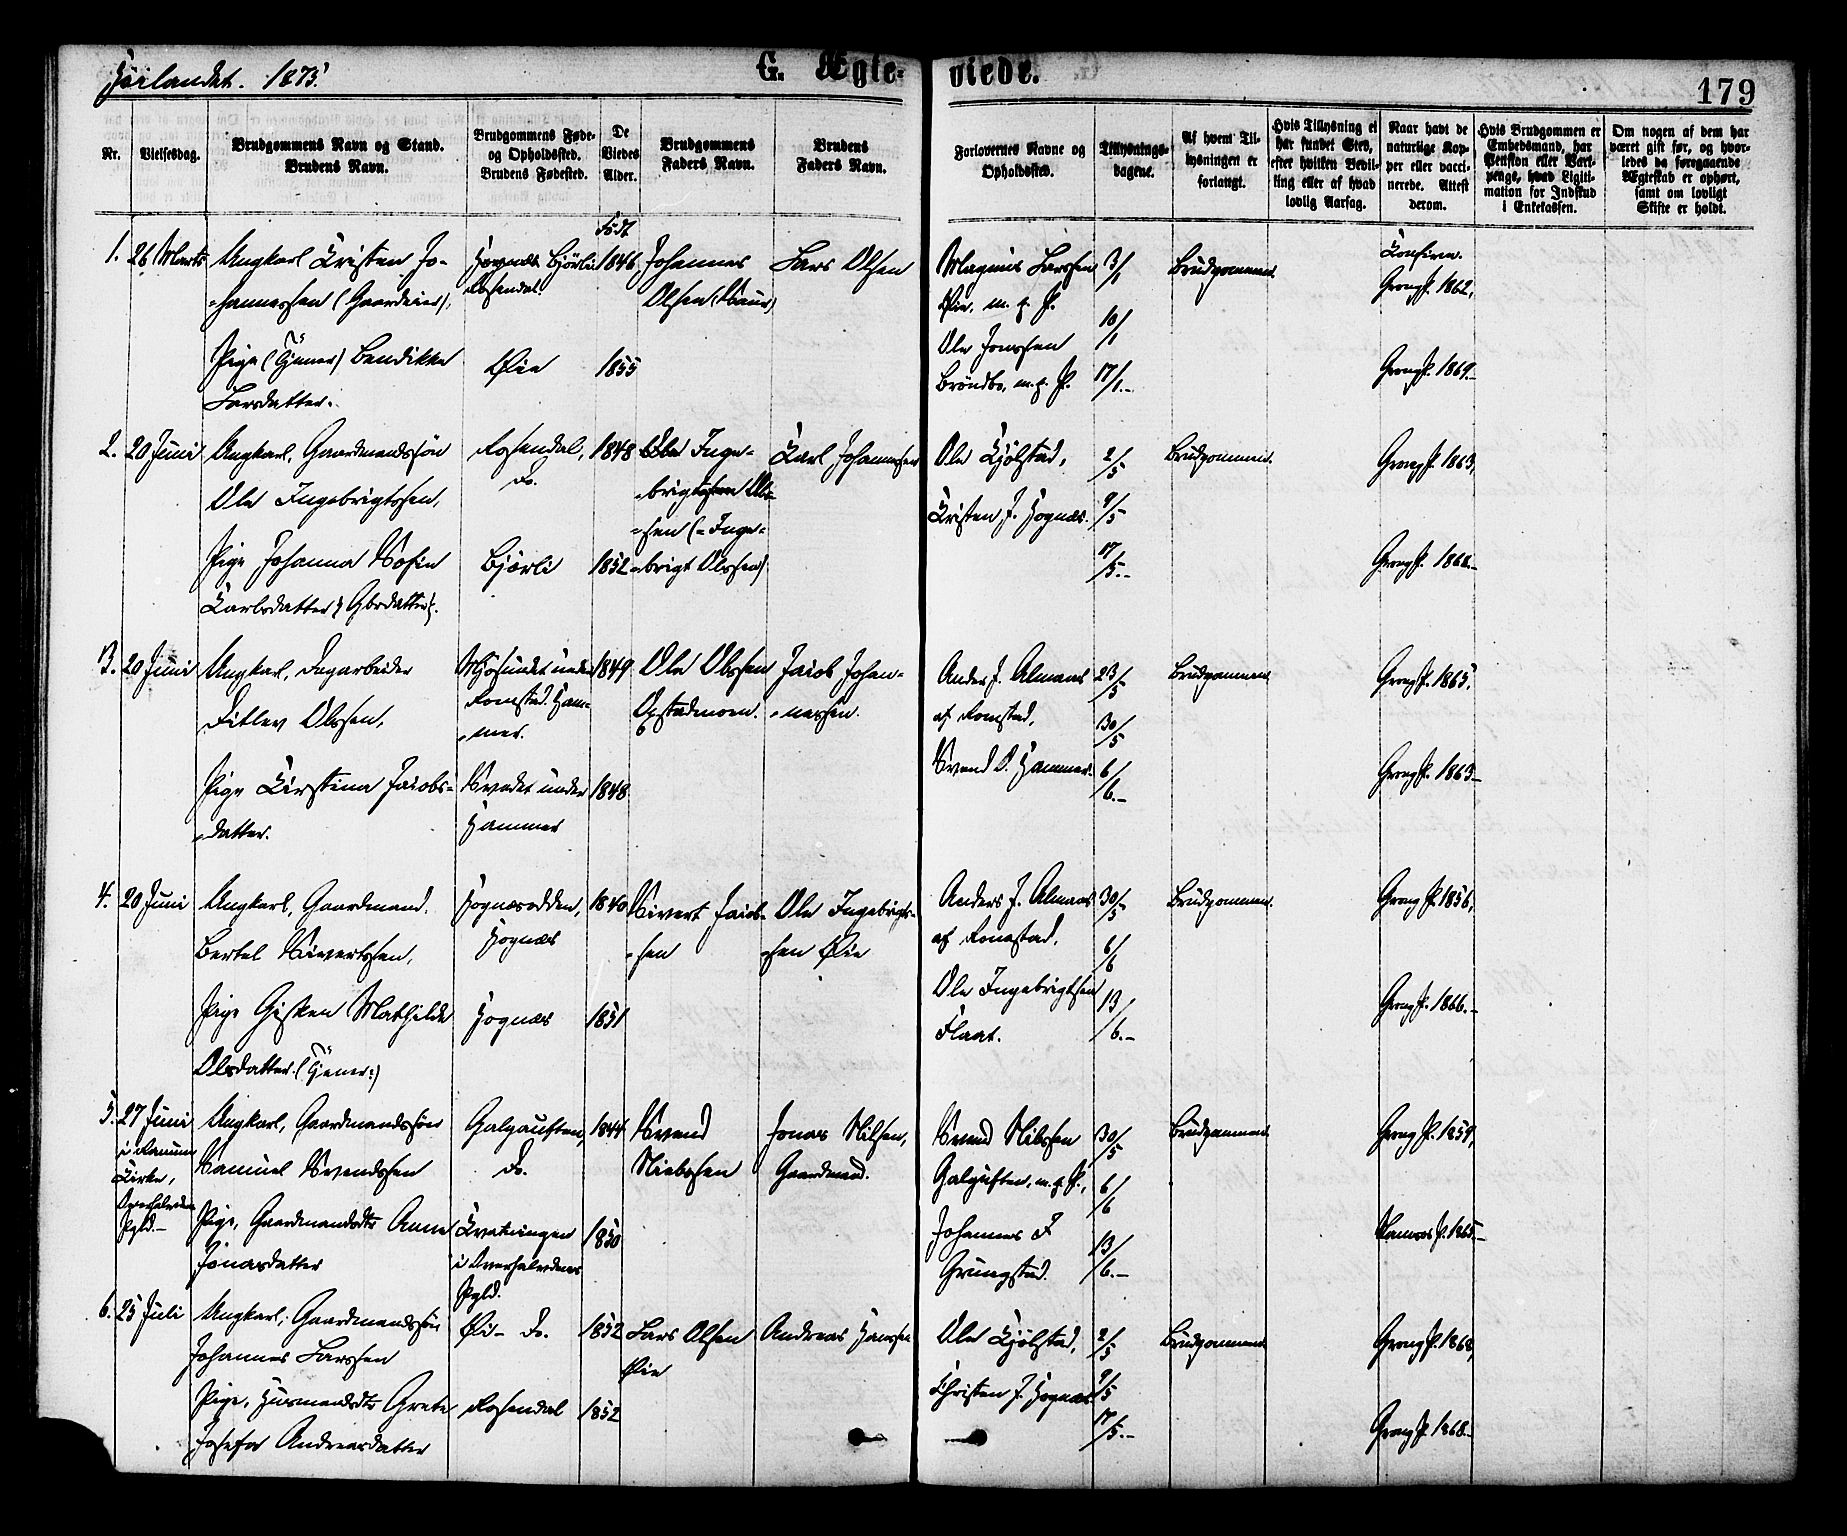 Hørlandet. 1875.
G. Ægte-
viede.
179
Nr.
Vielsesdag.
Brudgommens Navn og Stand.
Brudens Navn.
Brudgommens Føde-
og Opholdssted.
Brudens Fødested.
De
Viedes
Alder.
Brudgommens
Faders Navn.
Brudens
Faders Navn.
Forlovernes Navne og
Opholdssted.
Tillysnings-
dagene.
Af hvem Til-
lysningen er
forlangt.
Hvis Tillysning ei
har fundet Sted,
efter hvilken Bevil-
ling eller af hvad
lovlig Aarsag.
Naar havt de
naturlige Kop-
per eller vacci-
nerede. Attest
derom.
Hvis Brudgommen er
Embedsmand, har
Pension eller Vart-
penge, hvad Ligiti-
mation for Indskud
i Enkekassen.
Om nogen af dem har
været gift før, og hvor-
ledes da foregaaende
Ægteskab er ophørt,
samt om lovligt
Skifte er holdt.
1. 26 Marts
Ungkarl Kristen Jo-
hannessen (Gaardeier),
Pige (Tjener) Bendikke
Larsdatter.
Hognæs Bjørli
Rosendal
Øie
Født
1846
1855
Johannes
Olsen
Lars Olsen
Magnus Larssen
Øie, m. p. P.
Ole Jonssen
Brøndbo, m. p. P.
3/1
10/1
17/1.-
Brudgommen.
Konfirm.
Grong P. 1862,
Grong P. 1869.-
2. 20 Juni
Ungkarl, Gaardmandssøn
Ole Ingebrigtssen,
Pige Johanna Sofie
Karlsdatter (Gbrdatter).
Rosendal,
Do.
Bjørli
1848
1852
Ole Inge-
brigtssen Ol-
sen (= Inge-
brigt Olssen)
Karl Johannessen
Ole Kjølstad,
Kristen J. Hognæs.
2/5
9/5
17/5.-
Brudgommen.
Grong P. 1863,
Grong P. 1868.-
3. 20 Juni
Ungkarl, Dagarbeider
Ditlev Olssen,
Pige Kirstina Jacobs-
datter.
Mjøsundet under
Romstad. Ham-
mer.
Svedet under
Hammer
1849
1848
Ole Olssen
Opstadmoen.
Jacob Johan-
nessen.
Anders J. Almaas
af Romstad,
Svend O. Hammer.
23/5
30/5
6/6.-
Brudgommen.
Grong P. 1865,
Grong P. 1863-
4. 20 Juni
Ungkarl, Gaardmand.
Bertel Sivertssen,
Pige Gisken Mathilde
Olsdatter. (Tjener:)
Hognæsodden,
Hognæs
Hognæs
1840
1851
Sivert Jacob-
sen
Ole Ingebrigt-
sen Øie
Anders J. Almaas
af Romstad,
Ole Ingebrigtsen
Flaat.
30/5
6/6
13/6.-
Brudgommen.
Grong P. 1856,
Grong P. 1866.-
5. 27 Juni
i Ranum
Kirke,
Overhalvden
Pgld.-
Ungkarl, Gaardmandssøn
Samuel Svendssen
Pige, Gaardmandsdtr Anne
Jonasdatter
Galguften,
Do.
Kvatningen
i Overhalvdens
Pgld.
1844
1850
Svend
Nielssen
Jonas Nilsen,
Gaardmand.
Svend Nilssen
Galguften, m. p. P.,
Johannes F
Grungstad.
30/5
6/6
13/6.-
Brudgommen.
Grong P. 1859,
Namsos P. 1865.-
6. 25 Juli
Ungkarl, Gaardmandssøn
Johannes Larssen
Pige, Husmandsdtr Grete
Josefa Andreasdatter
Øie - Do.
Rosendal
1852
1852
Lars Olsen
Øie
Andreas Hanssen
Ole Kjølstad,
Christen J. Hognæs
2/5
9/5
17/5.-
Brudgommen.
Grong P. 1868,
Grong P. 1868.-